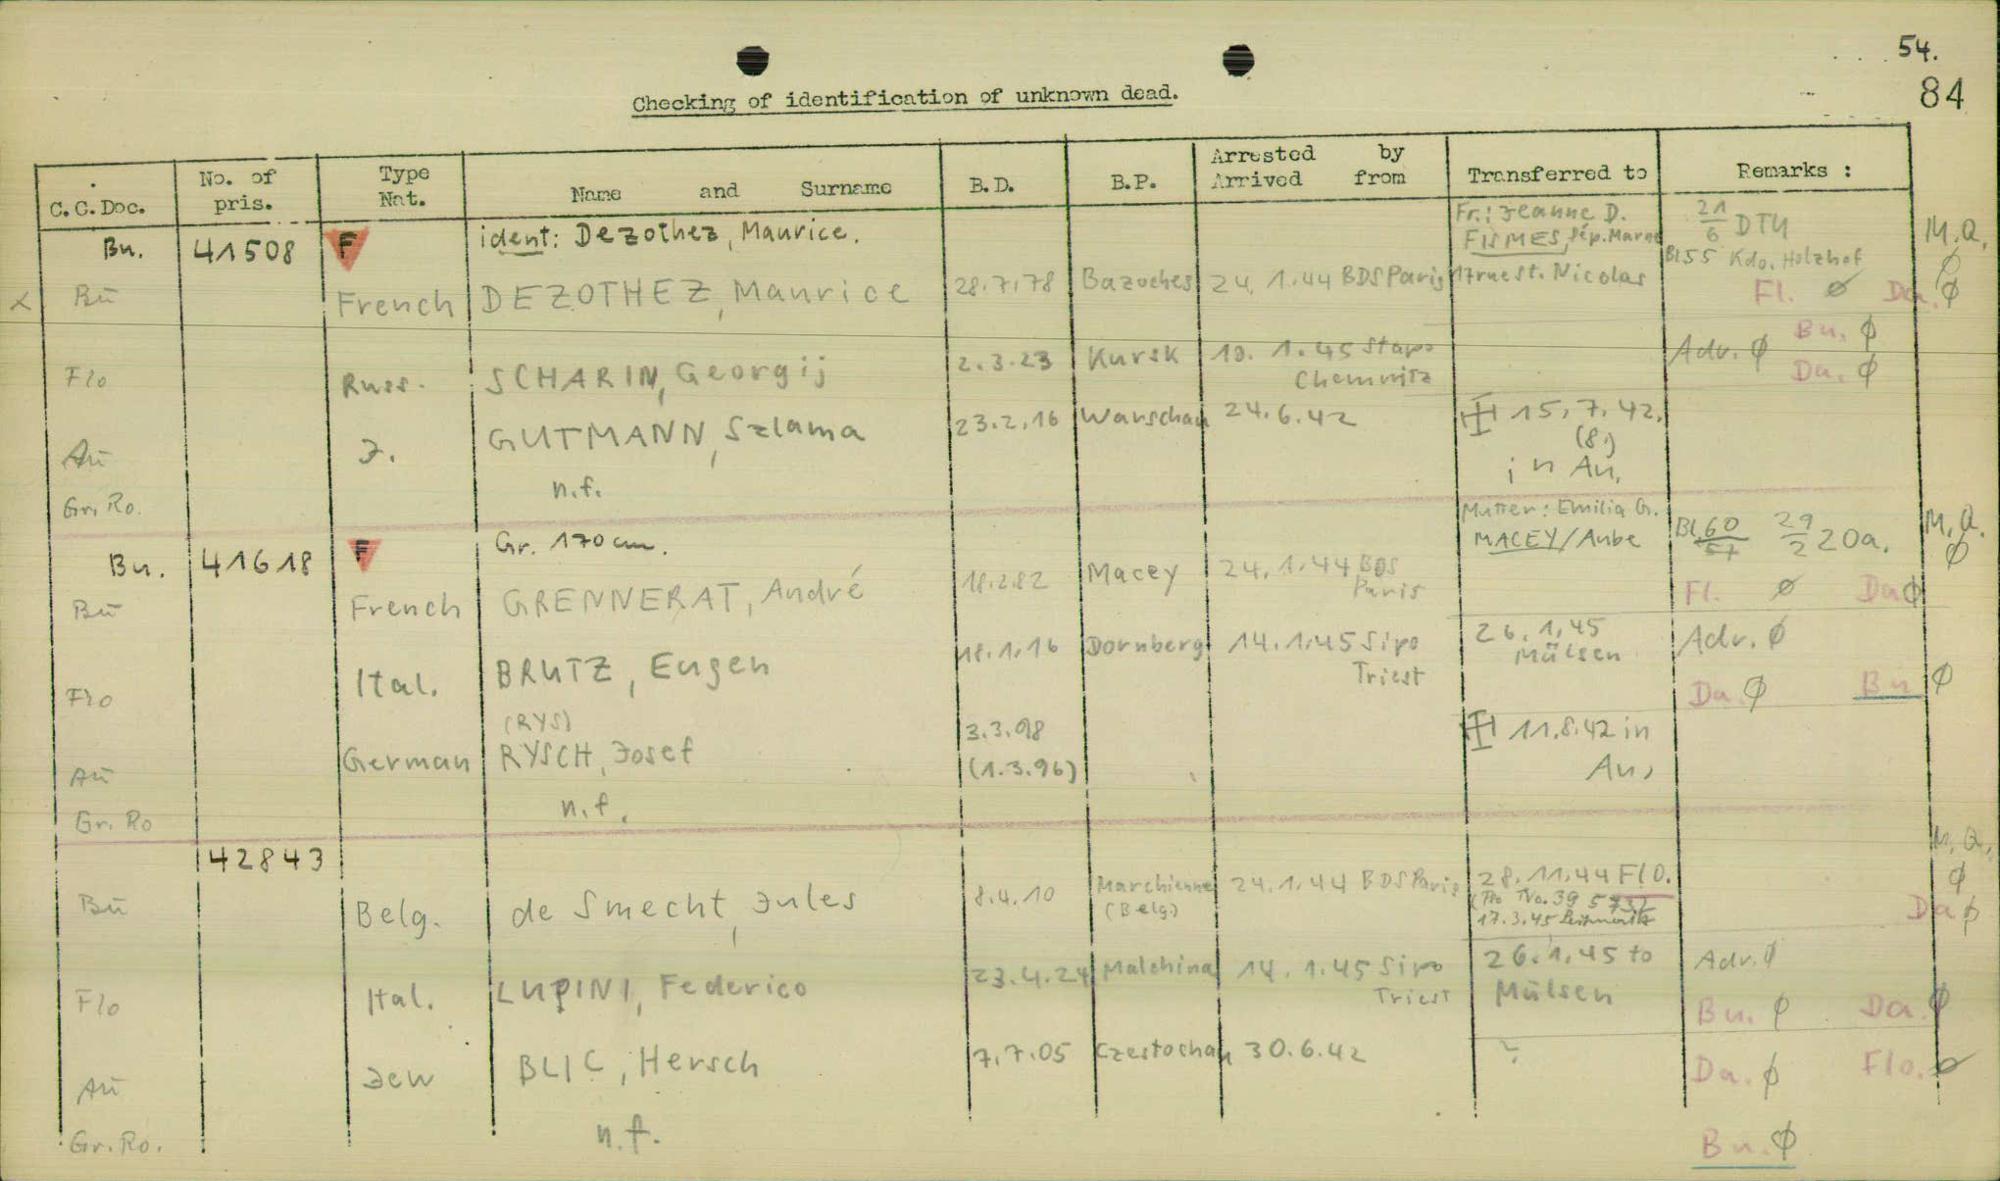 54.
84
Checking of identification of unknown dead.
C.C.Doc.
No. of pris.
Type Nat.
Name and Surname
B.D.
B.P.
Arrested by
Arrived from
Transferred to
Remarks :
Bu. 41508 F ident: Dezothez, Maurice. Fr.: Jeanne D. 21/6 DTU M.Q.
FISMES, Dép. Marne Bl55 Kdo. Holzhof ϕ
x Bu French DEZOTHEZ, Maurice 28.7.78 Bazoches 24.1.44 BDS Paris 17 rue St. Nicolas Fl. ϕ Da. ϕ
Bu. ϕ
Flo Russ. SCHARIN, Georgij 2.3.23 Kursk 10.1.45 Stapo Adv. ϕ
Chemnitz Da. ϕ
Au J. GUTMANN, Szlama 23.2.16 Warschau 24.6.42 15.7.42.
(8.)
in Au.
Gr. Ro. n.f.
Mutter: Emilia G.
Bu. 41618 F Gr. 170 cm. MACEY/Aube Bl.60/57 29/2 20a. M.Q.
ϕ
Bu French GRENNERAT, André 18.2.82 Macey 24.1.44 BDS Fl. ϕ Da ϕ
Paris
Flo Ital. BRUTZ, Eugen 18.1.16 Dornberg 14.1.45 Sipo 26.1.45 Adv. ϕ
Triest Mülsen
Da. ϕ Bu ϕ
(RYS) 3.3.98 11.8.42 in
Au German RYSCH, Josef (1.3.96) Au,
Gr. Ro n.f.
42843 M.Q.
ϕ
Bu Belg. de Smecht, Jules 8.4.10 Marchienne 24.1.44 BDS Paris 28.11.44 Flo.
(Belg.) No. 39 Da ϕ
17.3.45 Leitmeritz
Flo Ital. LUPINI, Federico 23.4.24 Malchina 14.1.45 Sipo 26.1.45 to Adv. ϕ
Triest Mülsen Bu. ϕ Da. ϕ
Au Jew BLIC, Hersch 7.7.05 Czestochau 30.6.42 ? Da. ϕ Flo. ϕ
Gr. Ro. n.f. Bu. ϕ